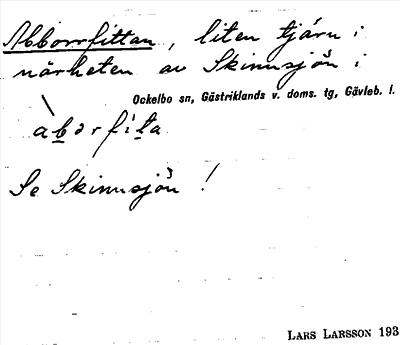 Abborrfittan, liten tjärn i
närheten av Skinnsjön i
Ockelbo sn, Gästriklands v. doms. tg, Gävleb. l.
àbərfìta
Se Skinnsjön!
LARS LARSSON 193